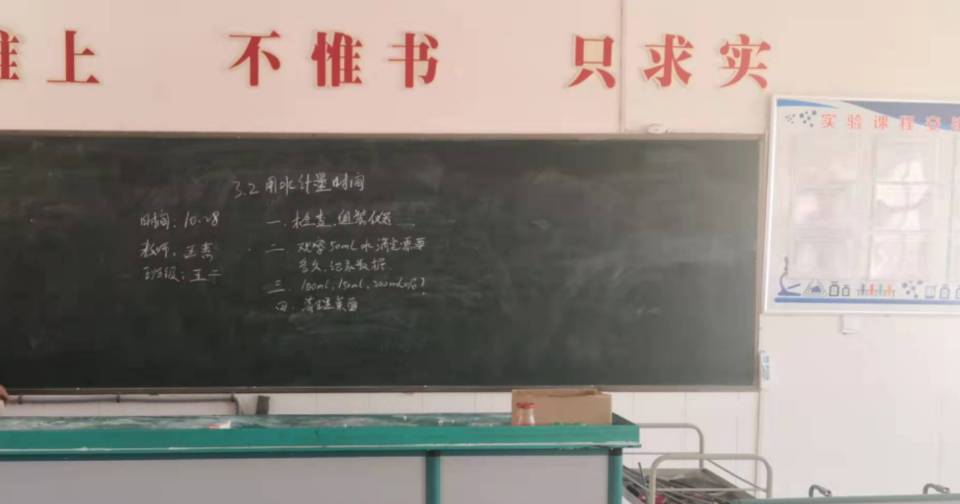 上 不惟书 只求实
实验课程
3.2 用水计量时间
时间：10.28
一、检查、组装仪器
二、观察50mL水滴完需要
多久，记录数据
班级：五二
三、100mL，150mL，200mL呢？
四、清洁桌面